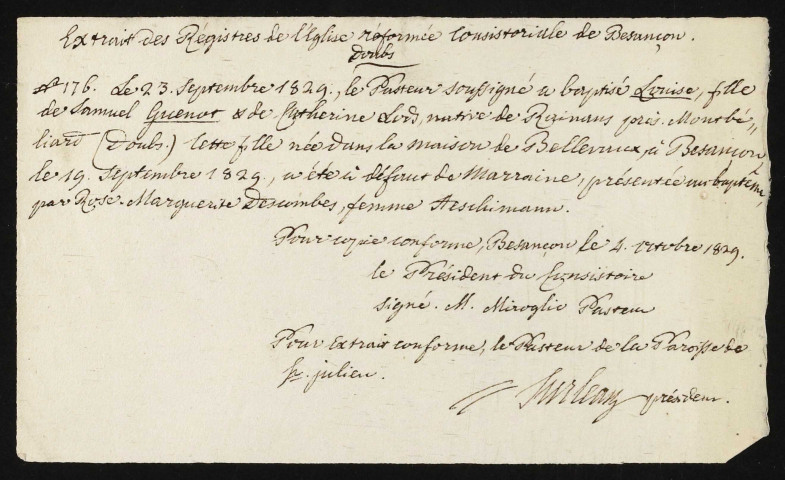 Extrait des Régistres de l'Eglise réformée Consistoriale de Besançon.
Doubs
N° 176. Le 23. Septembre 1829., le Pasteur soussigné a baptisé Louise, fille
de Samuel Guenot & de Catherine Lods, native de Raÿnans près Montbé„
liard (Doubs.) Cette fille née dans la maison de Bellevaux, à Besançon,
le 19. Septembre 1829., a été à défaut de Marraine, présentée au baptême,
par Rose-Marguerite Descombes, femme Aeschimann.
Pour copie conforme, Besançon le 4. octobre 1829.
le Président du Consistoire
signé. M. Miroglio Pasteur
Pour Extrait conforme, le Pasteur de la Paroisse de
St. julien.
Surleau président.